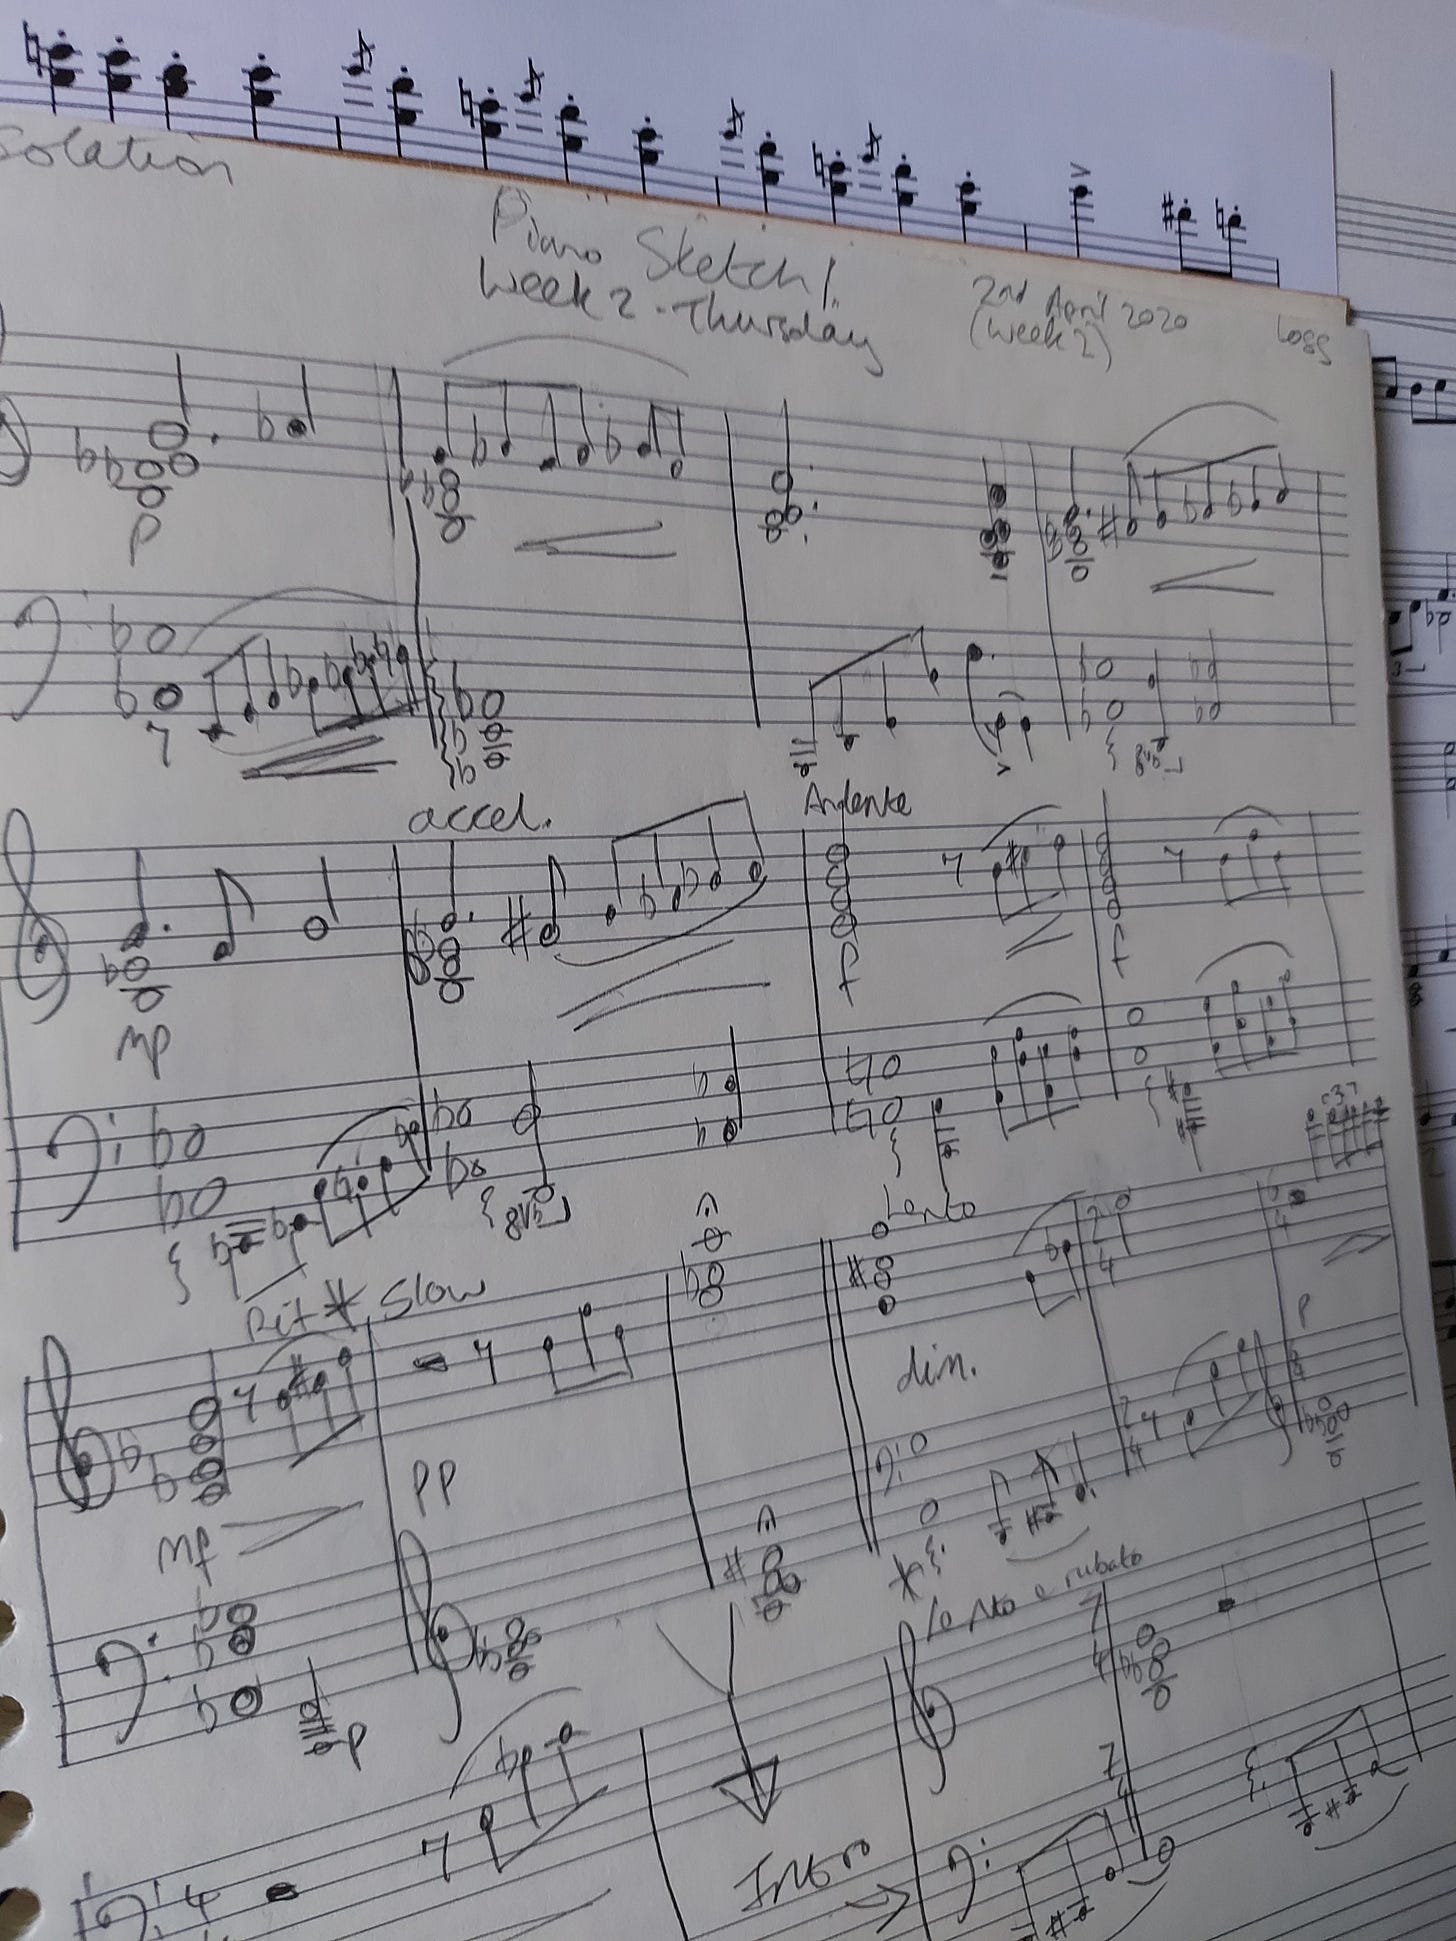 solation
Piano Sketch!
Week 2 - Thursday
2nd April 2020
(Week 2)
Logg
p
accel.
Andante
8vb
mp
f
f
8vb
Rit * Slow
Lento
3
2
4
p
dim.
mf
pp
p
2
4
Lento e rubato
7
4
7
4
Intro